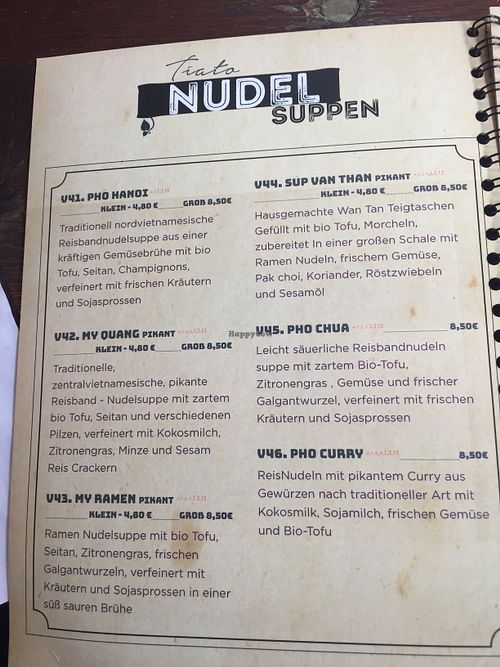 Tiato
NUDEL
SUPPEN
V41. PHO HANOI
KLEIN - 4,80 € GROß 8,50€
Traditionell nordvietnamesische
Reisbandnudelsuppe aus einer
kräftigen Gemüsebrühe mit bio
Tofu, Seitan, Champignons,
verfeinert mit frischen Kräutern
und Sojasprossen
V42. MY QUANG PIKANT
KLEIN - 4,80 € GROß 8,50€
Traditionelle,
zentralvietnamesische, pikante
Reisband - Nudelsuppe mit zartem
bio Tofu, Seitan und verschiedenen
Pilzen, verfeinert mit Kokosmilch,
Zitronengras, Minze und Sesam
Reis Crackern
V43. MY RAMEN PIKANT
KLEIN - 4,80 € GROß 8,50€
Ramen Nudelsuppe mit bio Tofu,
Seitan, Zitronengras, frischen
Galgantwurzeln, verfeinert mit
Kräutern und Sojasprossen in einer
süß sauren Brühe
V44. SUP VAN THAN PIKANT
KLEIN - 4,80 € GROß 8,50€
Hausgemachte Wan Tan Teigtaschen
Gefüllt mit bio Tofu, Morcheln,
zubereitet In einer großen Schale mit
Ramen Nudeln, frischem Gemüse,
Pak choi, Koriander, Röstzwiebeln
und Sesamöl
HappyCow
V45. PHO CHUA 8,50€
Leicht säuerliche Reisbandnudeln
suppe mit zartem Bio-Tofu,
Zitronengras , Gemüse und frischer
Galgantwurzel, verfeinert mit frischen
Kräutern und Sojasprossen
V46. PHO CURRY 8,50€
ReisNudeln mit pikantem Curry aus
Gewürzen nach traditioneller Art mit
Kokosmilk, Sojamilch, frischen Gemüse
und Bio-Tofu